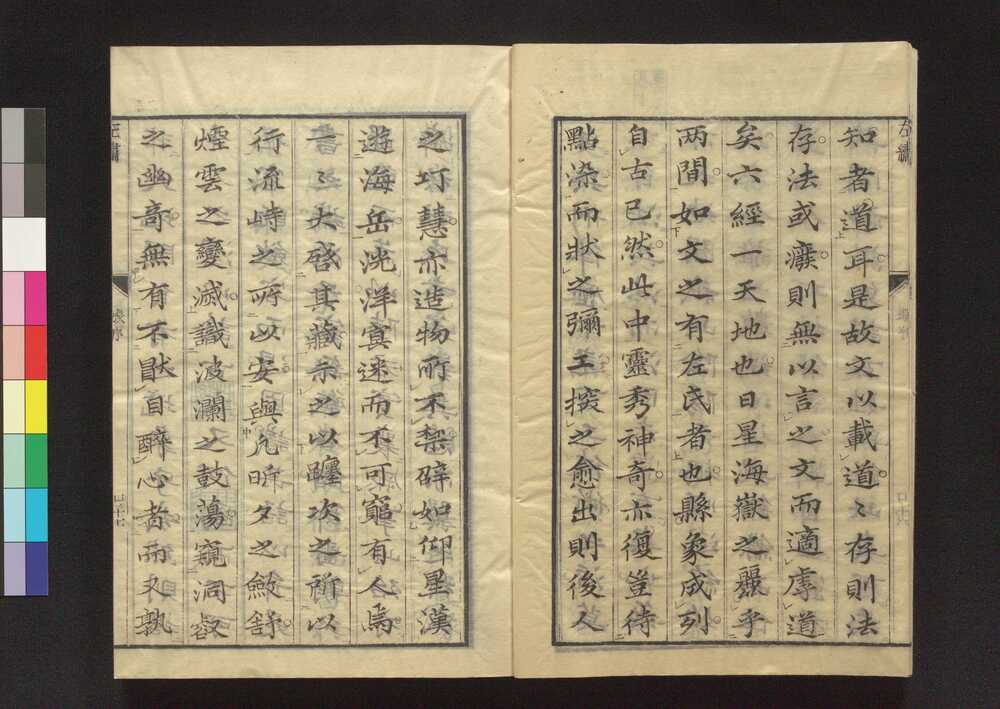 知者道耳是故文以載道〻存則法
存法或癈則無以言之文而適虖道
矣六經一天地也日星海嶽之麗乎
两間如文之有左氏者也縣象成列
自古已然此中靈秀神奇亦復豈待
點染而狀之彌工摉之愈出則後人
之灯慧亦造物所不靳譬如仰星漢
遊海岳洸洋寞逺而不可竆有人焉
書〻大啓其藏示之以躔次之所以
行流峙之所以安與凢昕夕之斂舒
煙雲之變滅識波瀾之鼓蕩窺洞壑
之幽竒無有不猒目醉心者而又孰
左繡
左繡